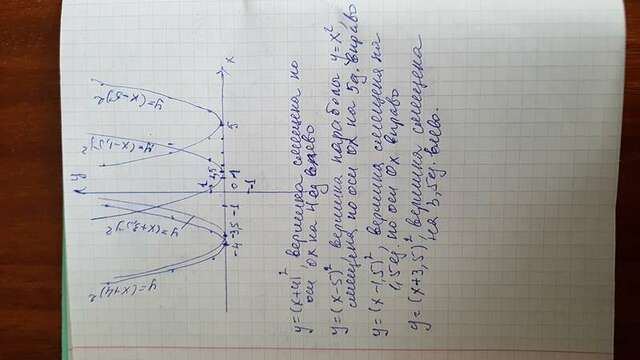 y
y=(x+4)²
y=(x+3,5)²
y=(x-1,5)²
y=(x-5)²
1
-4 -3,5 -1 0 1 1,5 5 x
-1
y=(x+4)², вершина смещена по
оси Ox на 4 ед влево
y=(x-5)², вершина параболы y=x²,
смещена по оси Ox на 5д. вправо
y=(x-1,5)², вершина смещена на
1,5ед. по оси Ox вправо
y=(x+3,5)², вершина смещена
на 3,5д. влево.